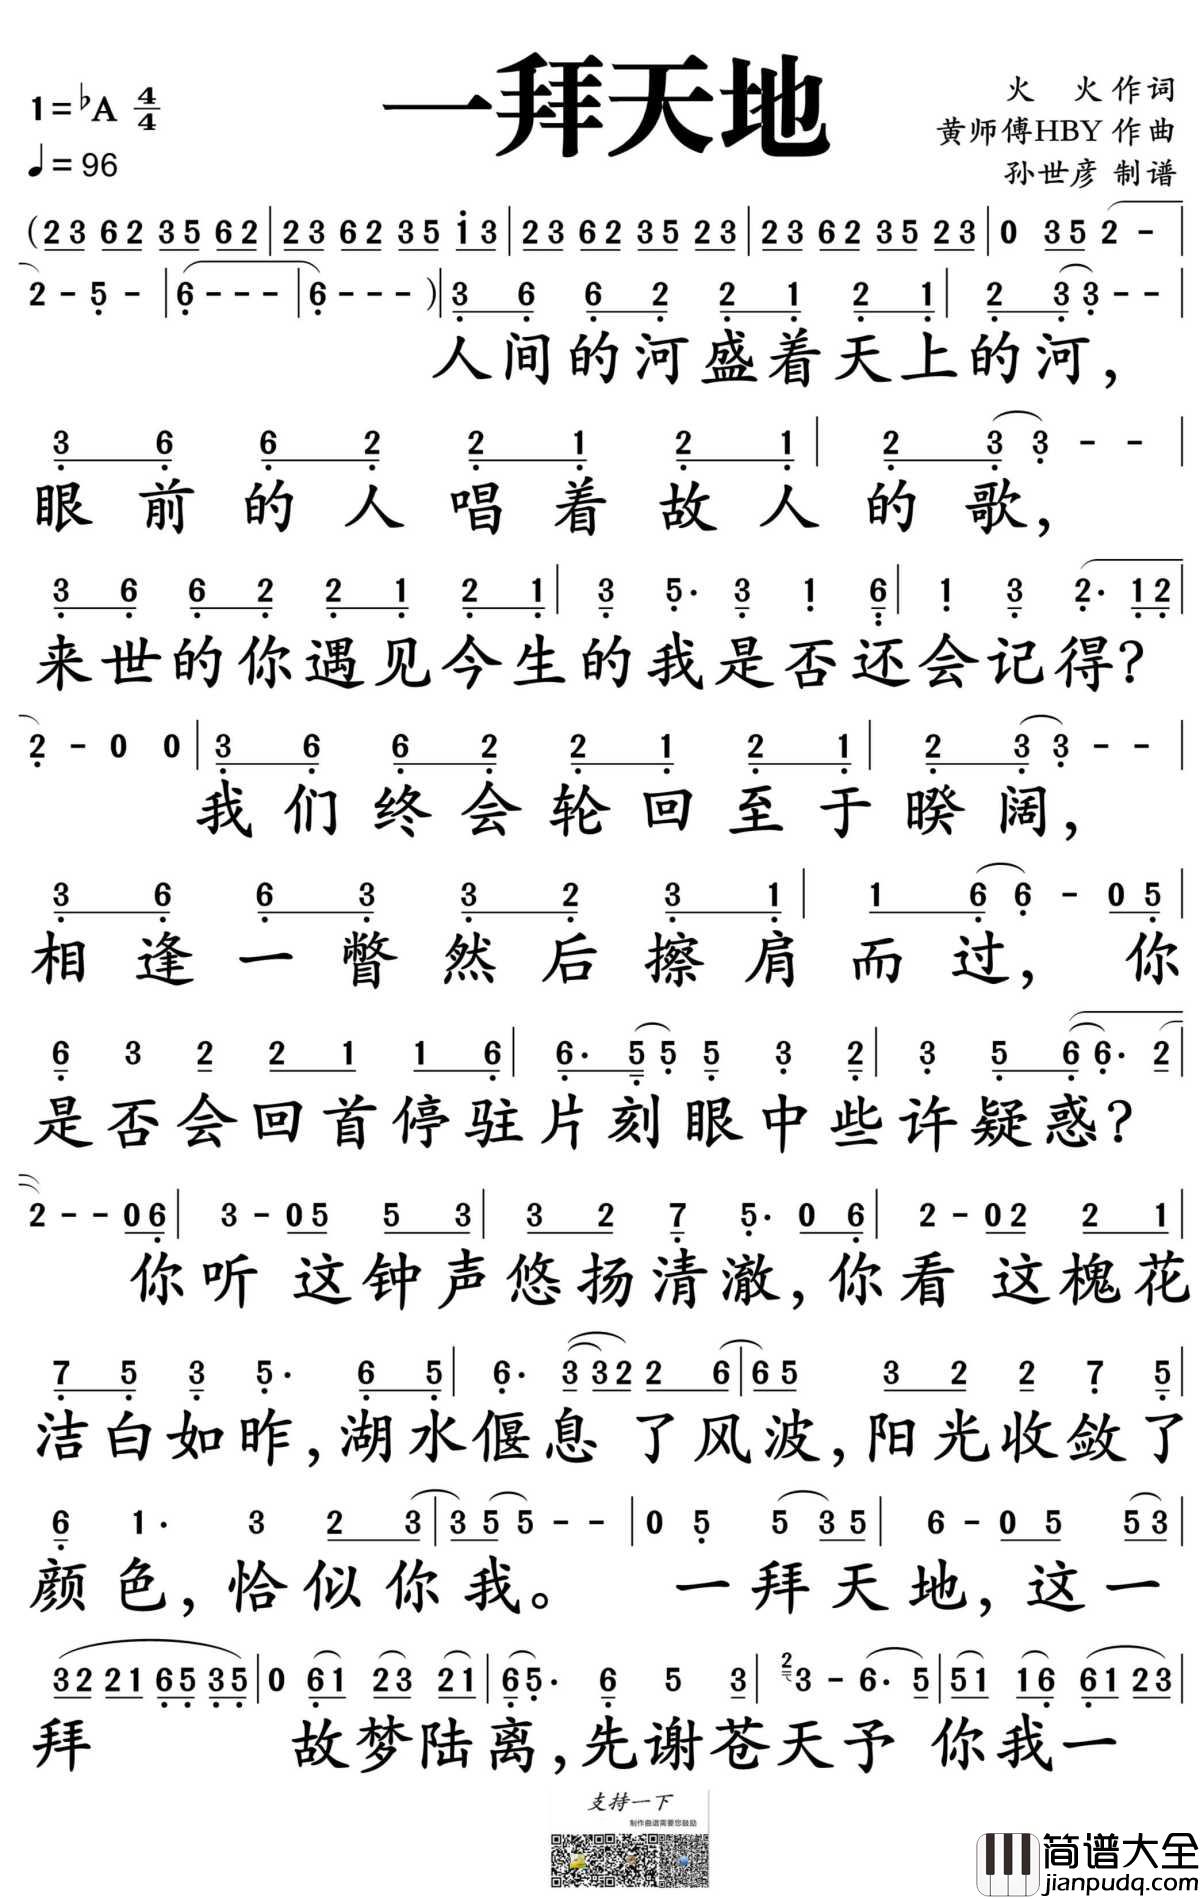 一拜天地
1=♭A 4/4
♩=96
火 火作词
黄师傅HBY 作曲
孙世彦 制谱
(23 62 35 62|23 62 35 i3|23 62 35 23|23 62 35 23|0 35 2 -|
2 - 5 - |6 - - - |6 - - - )|3 6 6 2 2 1 2 1|2 3 3 - - |
人间的河盛着天上的河,
3 6 6 2 2 1 2 1|2 3 3 - - |
眼前的人唱着故人的歌,
3 6 6 2 2 1 2 1|3 5· 3 1 6|1 3 2· 12|
来世的你遇见今生的我是否还会记得?
2 - 0 0|3 6 6 2 2 1 2 1|2 3 3 - - |
我们终会轮回至于暌阔,
3 6 6 3 3 2 3 1|1 6 6 - 0 5|
相逢一瞥然后擦肩而过, 你
6 3 2 2 1 1 6|6· 5 5 5 3 2|3 5 6 6· 2|
是否会回首停驻片刻眼中些许疑惑?
2 - - 0 6|3 - 0 5 5 3|3 2 7 5· 0 6|2 - 0 2 2 1|
你听 这钟声悠扬清澈, 你看 这槐花
7 5 3 5· 6 5|6· 3 3 2 2 6|6 5 3 2 2 7 5|
洁白如昨, 湖水偃息 了风波, 阳光收敛了
6 1· 3 2 3|3 5 5 - - |0 5 5 3 5|6 - 0 5 5 3|
颜色, 恰似你我。 一拜天地, 这一
32 21 65 35|0 61 23 21|65· 6 5 3|2 3 - 6· 5|51 16 61 23|
拜 故梦陆离, 先谢苍天予 你我一
支持一下
制作曲谱需要您鼓励
简谱大全
jianpudq.com